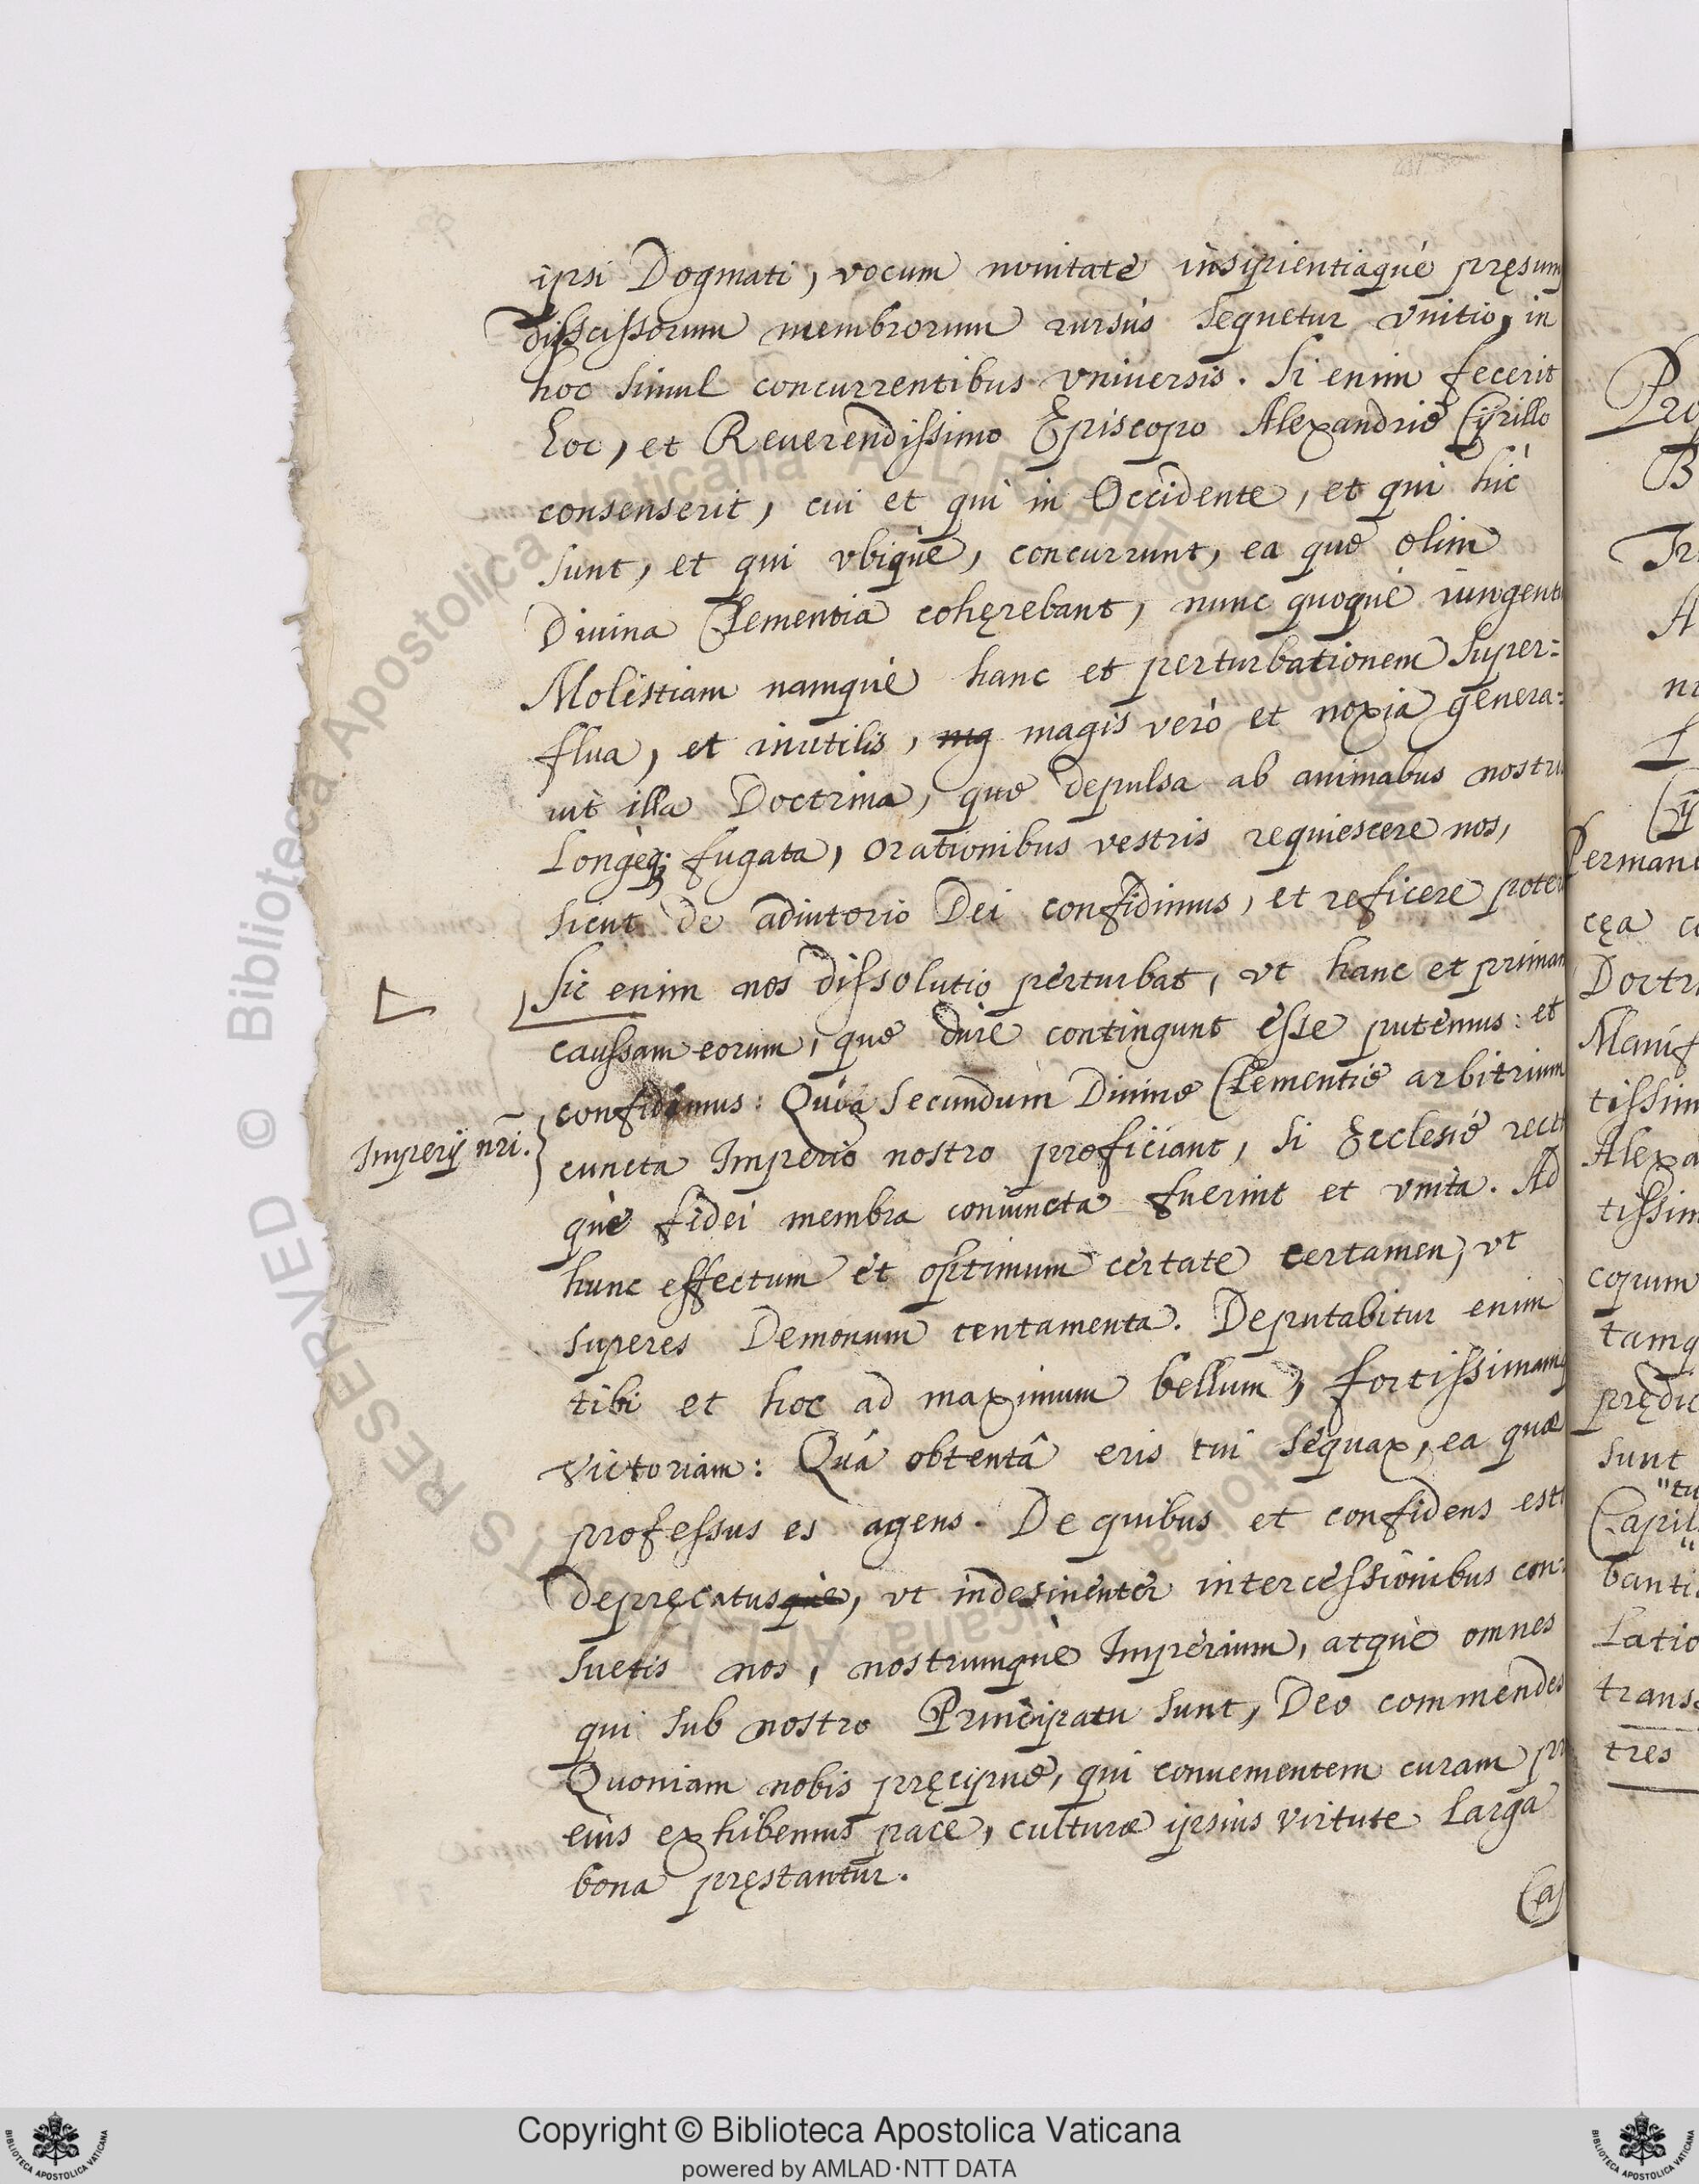 ipsi Dogmati, vocum nouitatè insipientiaqué pręsum
disscissorum membrorum rursùs sequetur vnitio, in
hoc simul concurrentibus vniuersis. Si enim fecerit
hoc, et Reuerendissimo Episcopo Alexandrię Cyrillo
consenserit, cui et qui in Occidente, et qui hìc
sunt, et qui vbique, concurrunt, ea quę olim
Diuina Clementia cohęrebant, nunc quoquè iungent
Molestiam namquè hanc et perturbationem super=
flua, et inutilis, mg magis verò et noxia genera=
uit illa Doctrina, quę depulsa ab animabus nostri
longèq; fugata, orationibus vestris requiescere nos,
sicut de adiutorio Dei confidimus, et reficere poter
Sic enim nos dissolutio perturbat, vt hanc et priman
caussam eorum, quę dure contingunt esse putemus: et
confidimus: Quòa secundùm Diuinę Clementię arbitrium
Imperij nrĩ.
cuncta Imperio nostro proficiant, si Ecclesię rect
què fidei membra coniuncta fuerint et vnita. Ad
hunc effectum et optimum certate certamen, vt
superes Demonum tentamenta. Deputabitur enim
tibi et hoc ad maximum bellum, fortissimamq
victoriam: Quâ obtentâ eris tui sequax, ea quæ
professus es agens. De quibus et confidens est
depręcatusquè, vt indesinenter intercessionibus con=
suetis nos, nostrumquè Imperium, atquè omnes
qui sub nostro Principatu sunt, Deo commendes
Quoniam nobis pręcipuè, qui conuenientem curam pr
eius exhibemus pace, culturæ ipsius virtute larga
bona pręstantur.
Permane
cęa
Doctri
Manif
tissim
Alexa
tissim
copum
tamq
prędic
sunt
Capil
banti
latio
trans
tres
© Biblioteca Apostolica Vaticana ALL RIGHTS RESERVED
Copyright © Biblioteca Apostolica Vaticana
powered by AMLAD·NTT DATA
BIBLIOTECA APOSTOLICA VATICANA
BIBLIOTECA APOSTOLICA VATICANA